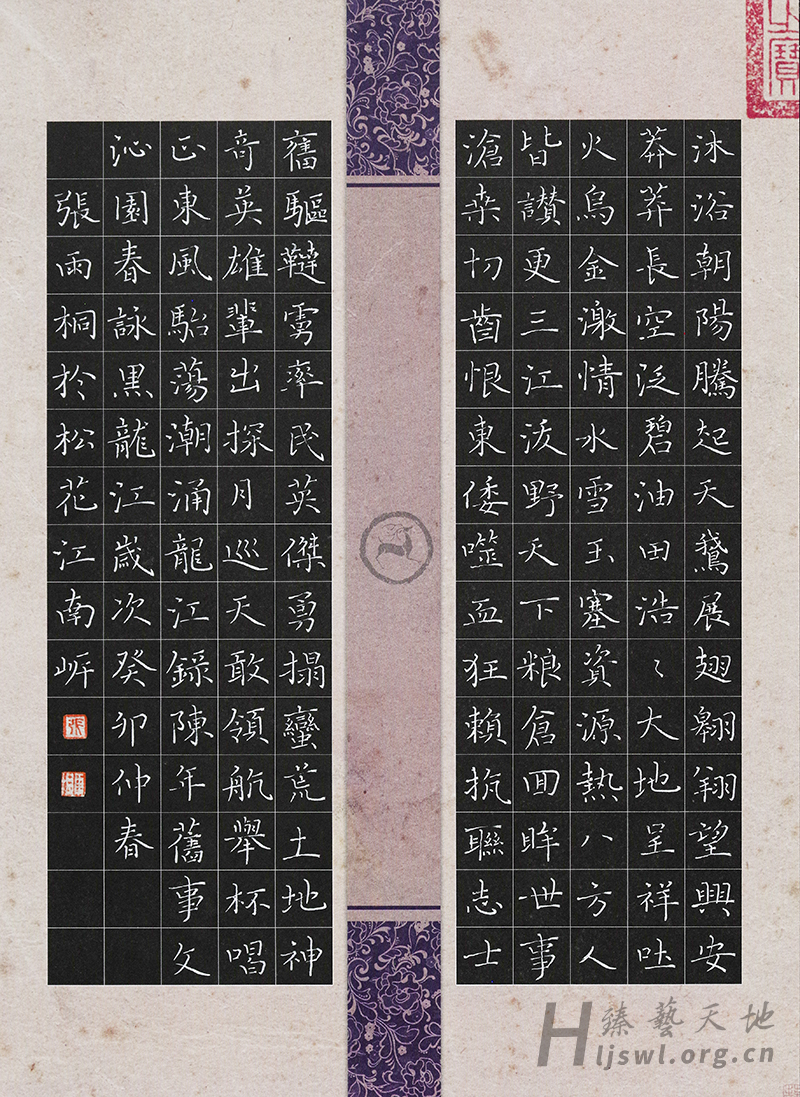 沐浴朝陽騰起天鵝展翅翱翔望興安
莽莽長空泛碧油田浩〻大地呈祥吐
火烏金激情水雪玉塞資源熱八方人
皆讚更三江沃野天下粮倉回眸世事
滄桒切齒恨東倭噬血狂賴抗聯志士
奮驅韃虜率民英傑勇搨蠻荒土地神
竒英雄輩出探月巡天敢領航舉杯唱
正東風駘蕩潮涌龍江錄陳年舊事文
沁園春詠黑龍江歲次癸卯仲春
張雨桐於松花江南岍
張
之寶
臻藝天地
Hljswl.org.cn